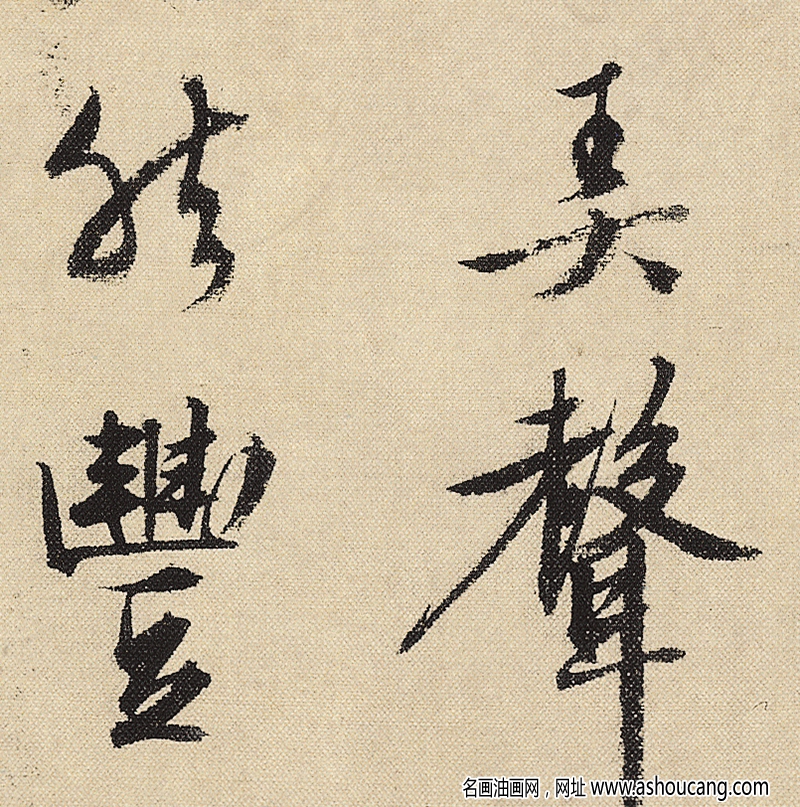 美聲
能豐
名画油画网，网址 www.ashoucang.com